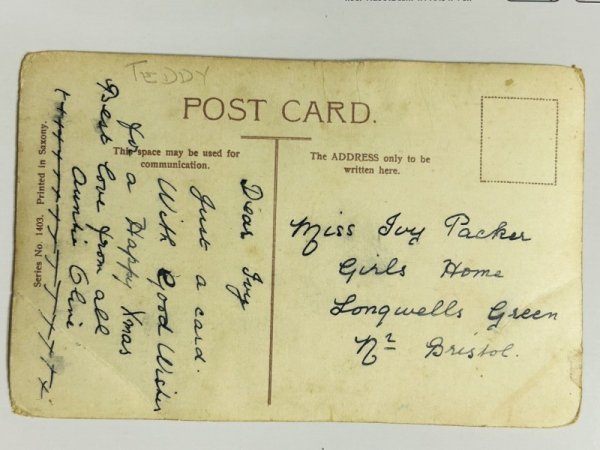 TEDDY
POST CARD.
This space may be used for
communication.
The ADDRESS only to be
written here.
Dear Ivy
Just a card.
With Good Wishes
for a Happy Xmas
Best love from all
Auntie Olive
Miss Ivy Packer
Girls Home
Longwells Green
Nr Bristol.
Series No. 1403. Printed in Saxony.